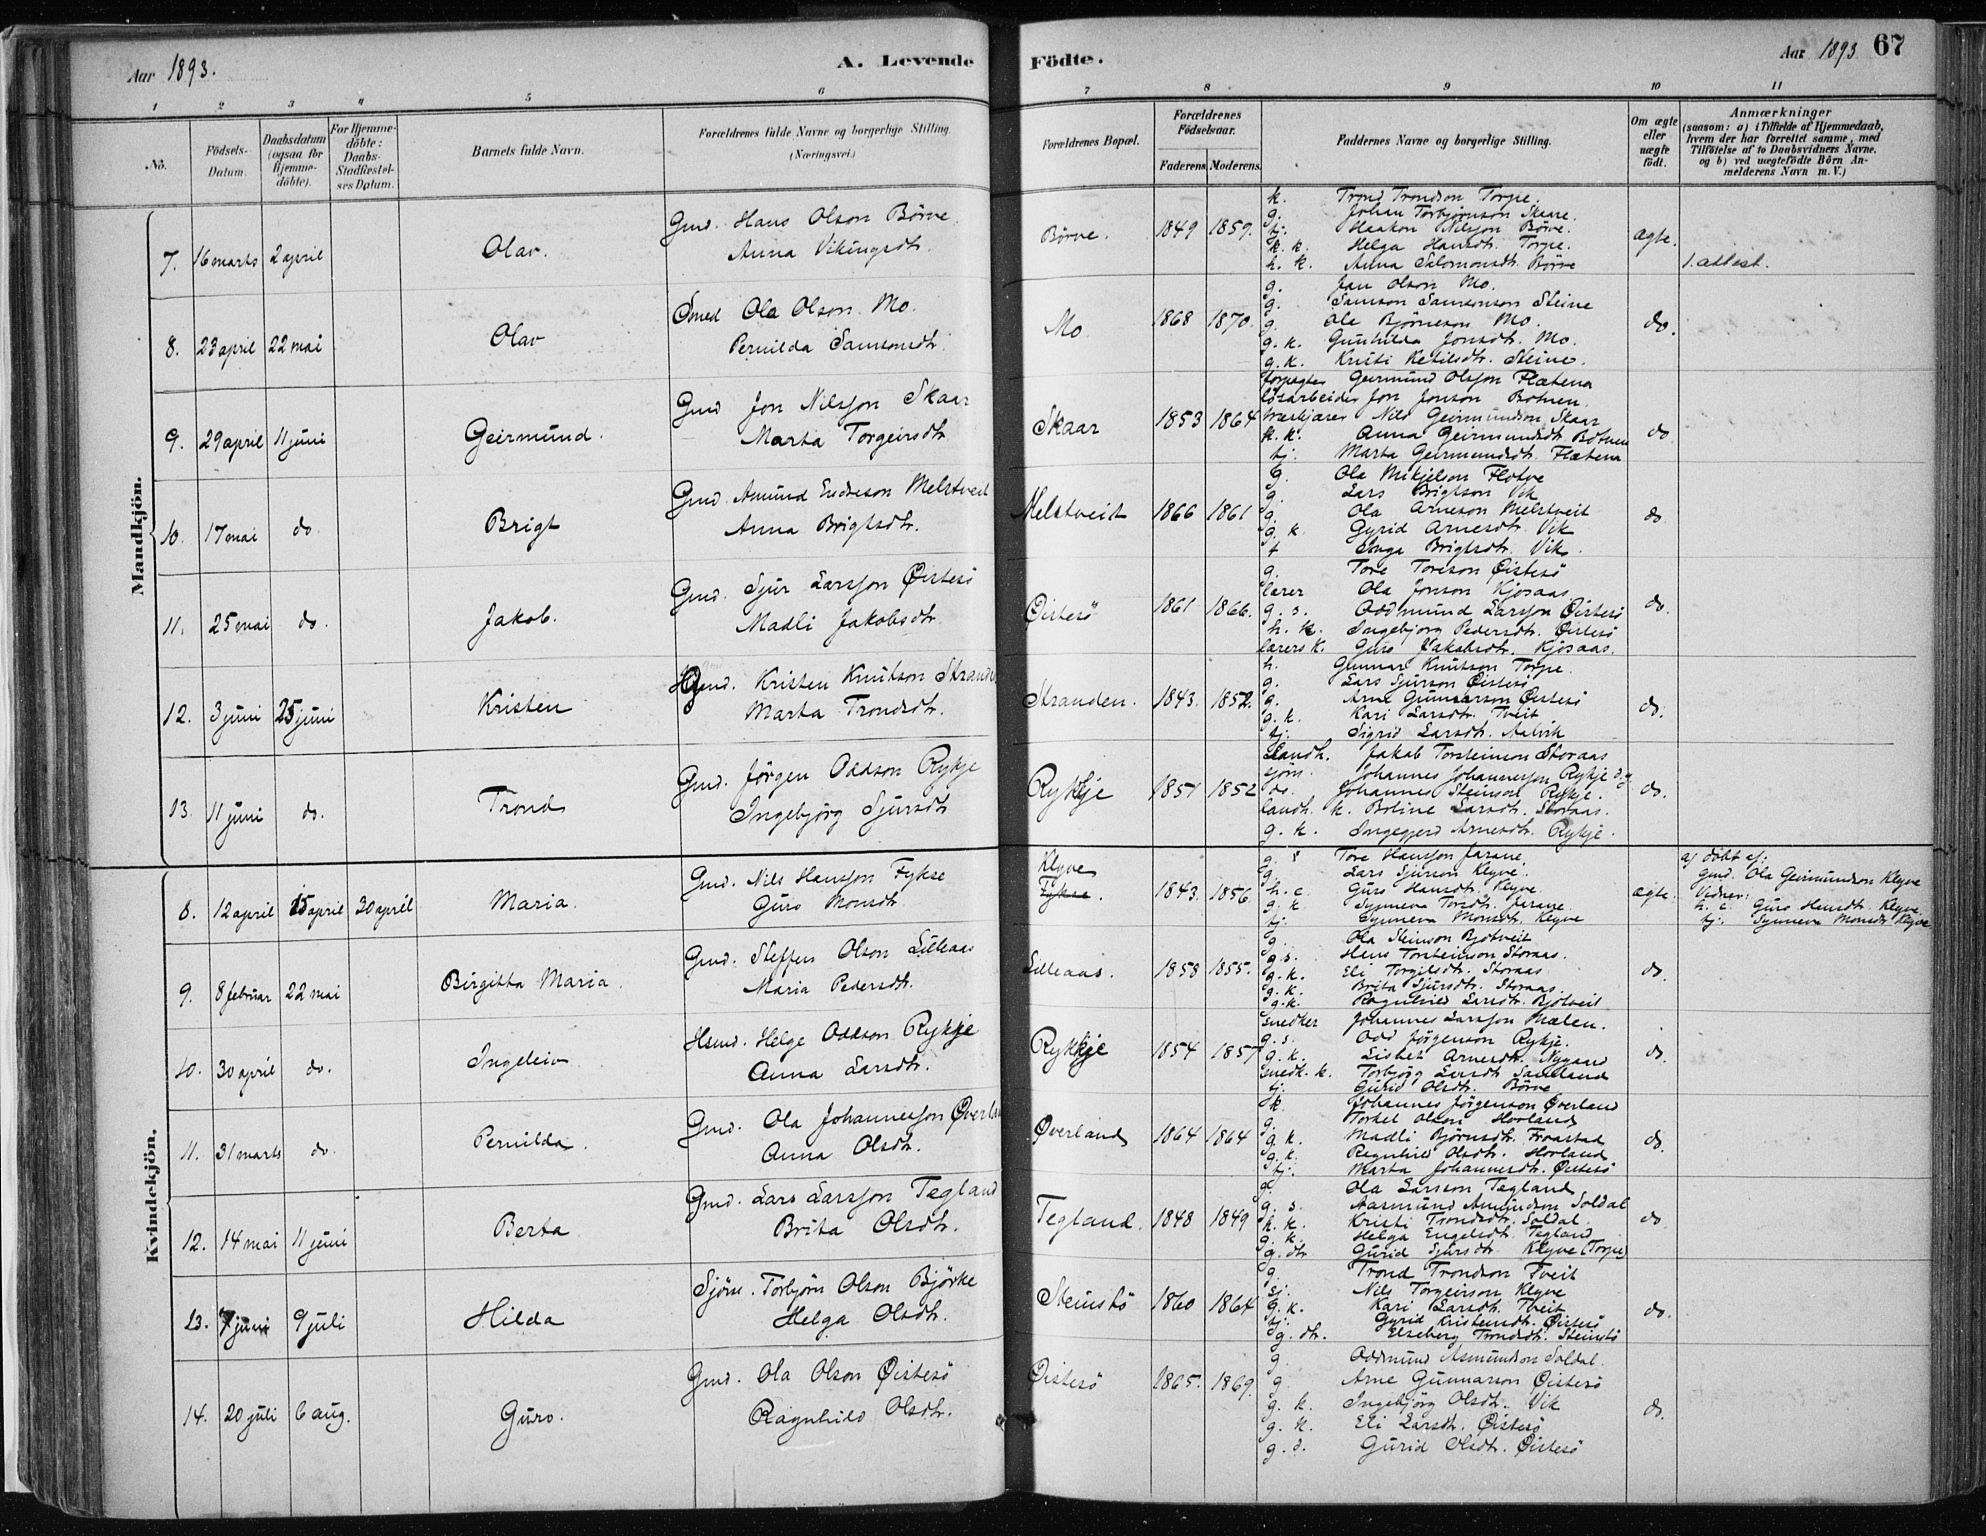 Aar 1893.
A. Levende Födte.
Aar 1893
67
1 2 3 4 5 6 7 8 9 10 11
No.
Födsels-Datum.
Daabsdatum (ogsaa for Hjemme-döbte).
For Hjemme-döbte: Daabs-Stadfæstel-ses Datum.
Barnets fulde Navn.
Forældrenes fulde Navne og borgerlige Stilling. (Næringsvei.)
Forældrenes Bopæl.
Forældrenes Födselsaar.
Faderens. Moderens.
Faddernes Navne og borgerlige Stilling.
Om ægte eller uægte födt.
Anmærkninger
(saasom: a) i Tilfælde af Hjemmedaab, hvem der har forrettet samme, med Tilföielse af to Daabsvidners Navne, og b) ved uægtefödte Börn An-melderens Navn m. V.)
Mandkjön.
7. 16 marts 2 april Olav. Gmd. Hans Olson Börve.
Anna Vikingsdt.
Börve. 1849 1859. ægte. 1. attest.
k. Trond Trondson Torpe.
g. Johan Torbjörnson Skaare.
tj. Haakon Nilsson Börve.
k. k. Helga Hansdt. Torpe.
h. k. Anna Salomonsdt. Börve
8. 23 april 22 mai Olav Smed Ola Olson Mo.
Pernilda Samsonsdt.
Mo. 1868 1870. do.
g. Jan Olson Mo.
g. Samson Samsonson Steine
g. Ole Björneson Mo.
g. k. Gunhilda Jonsdt. Mo.
g. k. Kristi Ketilsdt. Steine.
9. 29 april 11 juni Geirmund. Gmd Jon Nilsson Skaar
Marta Torgeirsdt
Skaar 1853 1864 do
forpagter Geirmund Olsson Flatena
lösarbeider Jon Jonson Botnen.
Nils Geirmundson Skaar
k. k. Anna Geirmundsdt. Botnen
tj. Marta Geirmundsdt. Flatena
10. 17 mai do. Brigt Gmd. Amund Endreson Melstveit
Anna Brigtsdt.
Melstveit 1866 1861 do
g. Ola Mikjelson Flotve
g. Lars Brigtson Vik
g. Ola Arneson Melstveit
g. k. Gyrid Arnesdt. Vik
t Inga Brigtsdt. Vik.
11. 25 mai do. Jakob. Gmd. Sjur Larsson Öistesö
Madli Jakobsdt.
Öistesö 1861 1866. do.
g. Tore Toreson Öistesö
lærer Ola Jonson Kjosaas
g. s. Oddmund Larsson Öistesö
h. k. Ingebjorg Pedersdt. Öistesö
lærers k. Guro Jakobsdt. Kjosaas.
12. 3 juni 25 juni Kristen Gmd. Kristen Knutson Stranden
Marta Trondsdt.
Stranden. 1843. 1852. do.
h. Gunnar Knutson Torpe.
g. Lars Sjurson Öistesö
g. Arne Gunnarson Öistesö
g. k. Kari Larsdt. Tveit
tj. Sigrid Larsdt. Aalvik
13. 11 juni do. Trond Gmd. Jörgen Oddson Rykje
Ingebjörg Sjursdt
Rykje 1851 1852 do.
Landh. Jakob Torsteinson Storaas
sjöm. Johannes Johannesson Rykje d.y.
do. Johannes Steinson Rykje.
landh. k. Boline Larsdt. Storaas.
g. k. Ingegjerd Arnesdt. Rykje.
Kvindekjön.
8. 12 april 15 april 30 april Maria. Gmd. Nils Hansson Fykse
Guro Monsdt.
Klyve
Fykse. 1843. 1856. ægte.
g. s Tore Hansson Jarane.
g. Lars Sjurson Klyve.
h. c. Guro Hansdt. Klyve.
g. k Synneva Torsdt. Jarane.
tj. Synneva Monsdt. Klyve
a) döbt af:
gmd. Ola Geirmundson Klyve
Vidner:
h. c. Guro Hansdt. Klyve
tj. Synneva Monsdt. Klyve
9. 8 februar 22 mai Birgitta Maria. Gmd. Steffen Olson Lilleaas
Maria Pedersdt.
Lilleaas. 1858 1855. do.
g. Ola Steinson Bjotveit
g.s. Hans Torsteinson Storaas.
g. k. Eli Torgilsdt. Storaas
g. k. Brita Sjursdt. Storaas.
g.k. Ragnhild Larsdt. Bjotveit
10. 30 april do. Ingeleiv Hsmd. Helge Oddson Rykje
Anna Larsdt.
Rykje 1854 1857 do.
snedker Johannes Larsson Mælen.
g.s. Odd Jörgenson Rykje.
g. k. Lisbet Arnesdt. Nygaard
snedk. k. Torbjörg Larsdt Samland
tj. Gurid Olsdt. Börve
11. 31 marts do. Pernilda. Gmd. Ola Johannesson Överland
Anna Olsdt.
Överland 1864 1864 do.
k. Johannes Jörgenson Överland
g. Torkel Olson Hovland
g. k. Madli Björnsdt. Froastad
g. k. Ragnhild Olsdt. Hovland
tj. Marta Johannesdt. Öistesö
12. 14 mai 11 juni Berta Gmd. Lars Larsson Tegland
Brita Olsdt.
Tegland. 1848 1849 do.
g. Ola Larsson Tegland
g. s. Aasmund Amundson Soldal
k. k. Kristi Trondsdt. Soldal
g. k. Helga Engelsdt. Tegland
g. dt Gurid Sjursdt. Klyve (Torpe)
13. 7 juni 9 juli Hilda Sjöm. Torbjörn Olson Björke
Helga Olsdt.
Steinstö 1860 1864 do.
g. Trond Trondson Tveit
tj. Nils Torgeirson Klyve
g. k. Kari Larsdt. Tveit
tj. Gyrid Kristensdt. Öistesö
g. dt. Elseberg Trondsdt. Steinstö
14. 20 juli 6 aug. Guro. Gmd. Ola Olson Öistesö
Ragnhild Olsdt.
Öistesö 1865. 1869. do.
g. Oddmund Asmundson Soldal.
g. Arne Gunnarson Öistesö
g. k. Ingebjörg Olsdt. Vik
g. k. Eli Larsdt. Öistesö
g. d. Gurid Olsdt. Öistesö